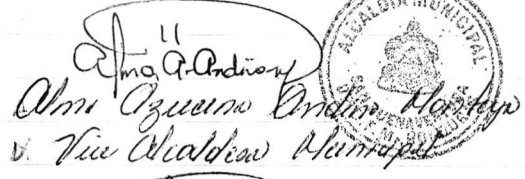 Alma A. Andino
Alma Azucena Andino
V. Vice Alcaldesa Municipal
ALCALDIA MUNICIPAL